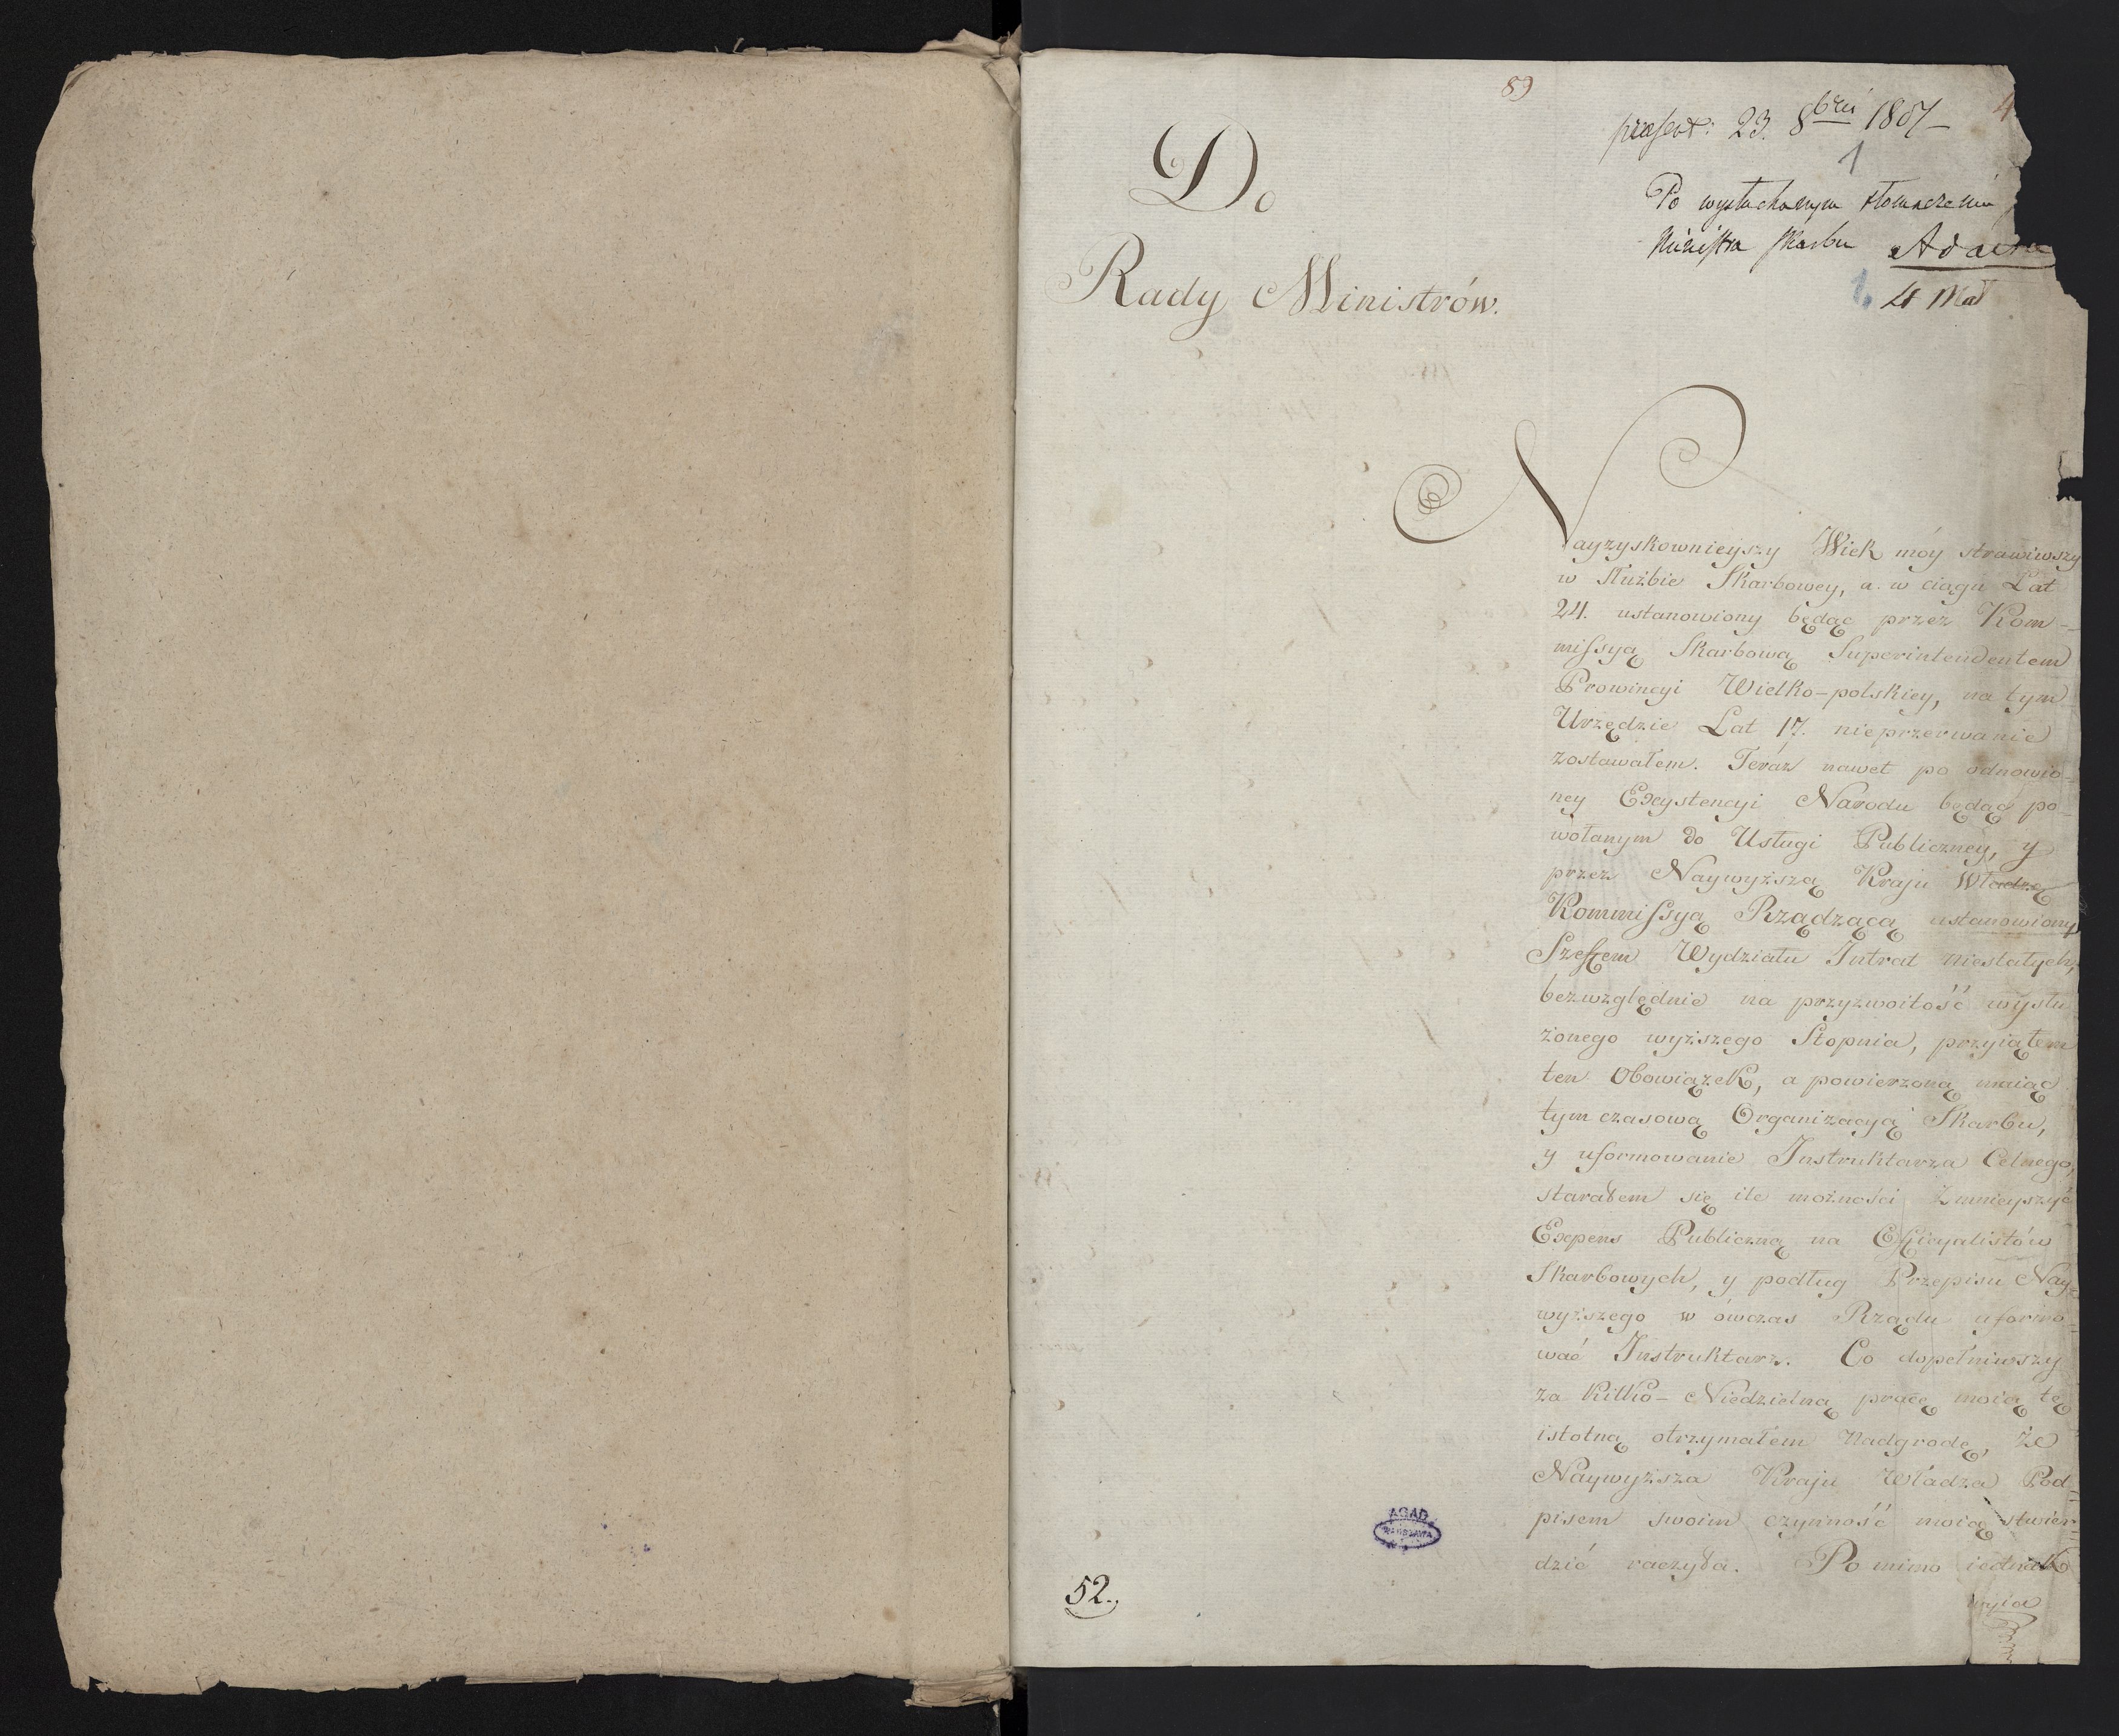 89
4
præsent: 23. 8brii 1807
1
Po wysłuchanym tłomaczeniu
Ministra Skarbu Ad acta
Do
Rady Ministrów.
Nayzyskownieyszy Wiek móy strawiwszy
w Służbie Skarbowey, a w ciągu Lat
24. ustanowiony będąc przez Kom-
missyą Skarbową Superintendentem
Prowincyi Wielko-polskiey, na tym
Urzędzie Lat 17. nieprzerwanie
zostawałem. Teraz nawet po odnowio-
ney Exystencyi Narodu będąc po-
wołanym do Usługi Publiczney, y
przez Naywyższą Kraju Władzę
Kommissyą Rządzącą ustanowiony
Szeffem Wydziału Intrat niestałych,
bezwzględnie na przyzwoitość wysłu
żonego wyższego Stopnia, przyiąłem
ten Obowiązek, a powierzoną maiąc
tymczasową Organizacyą Skarbu,
y uformowanie Instruktarza Celnego,
starałem się ile możności Zmnieyszyć
Expens Publiczną na Officyalistów
Skarbowych, y podług Przepisu Nay-
wyższego w ówczas Rządu uformo-
wać Instruktarz. Co dopełniwszy
za kilko-Niedzielną pracę moią tę
istotną otrzymałem Nadgrodę, że
Naywyższa Kraju Władza Pod-
pisem swoim czynność moią stwier-
dzić raczyła. Po mimo iednak
wyia
AGAD
WARSZAWA
52.